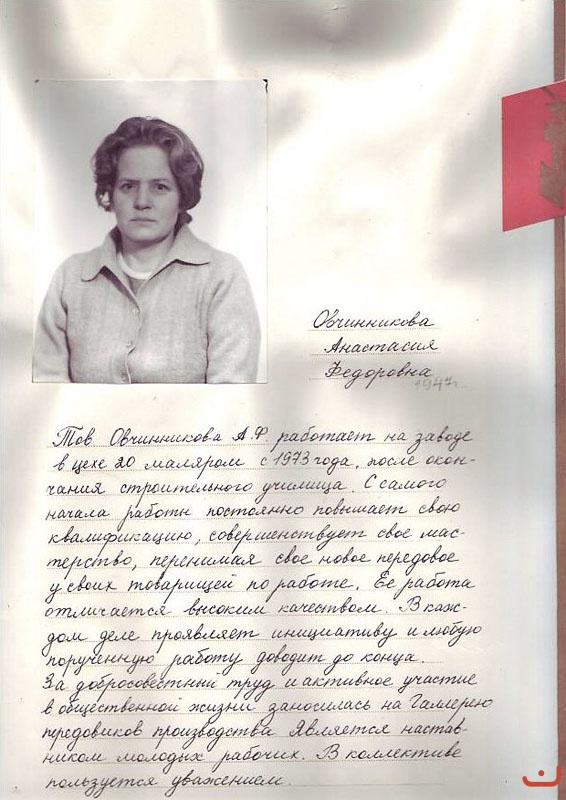 Овчинникова
Анастасия
Федоровна
1947г.
Тов Овчинникова А.Ф работает на заводе
в цехе 20 маляром с 1973 года, после окон-
чания строительного училища. С самого
начала работы постоянно повышает свою
квалификацию, совершенствует свое мас-
терство, перенимая свое новое передовое
у своих товарищей по работе. Ее работа
отличается высоким качеством. В каж-
дом деле проявляет инициативу и любую
порученную работу доводит до конца.
За добросовестный труд и активное участие
в общественной жизни заносилась на Галлерею
передовиков производства Является настав-
ником молодых рабочих. В коллективе
пользуется уважением.